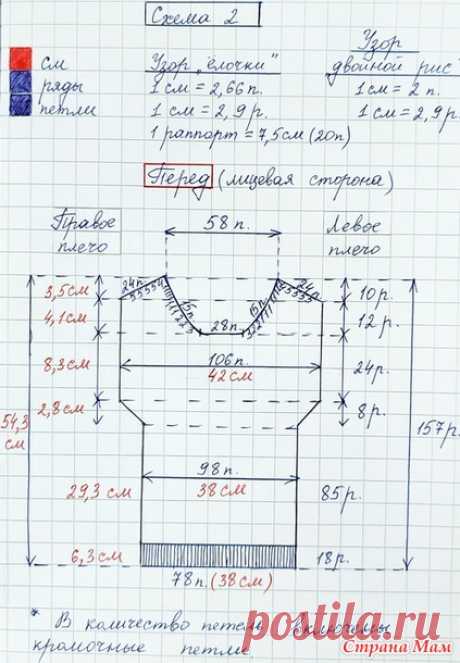 Схема 2
см Узор "ёлочки" Узор "двойной рис"
ряды 1 см = 2,66 п. 1 см = 2 п.
петли 1 см = 2,9 р. 1 см = 2,9 р.
1 раппорт = 7,5 см (20 п)
Перед (лицевая сторона)
Правое плечо 58 п. Левое плечо
24 п. 24 п.
3,5 см 10 р.
15 п. 15 п.
4,1 см 28 п. 12 р.
8,3 см 106 п. 24 р.
42 см
2,8 см 8 р.
54,3 см 157 р.
98 п.
29,3 см 38 см 85 р.
6,3 см 18 р.
78 п. (38 см)
* В количество петель включены
кромочные петли.
postila.ru
Страна Мам